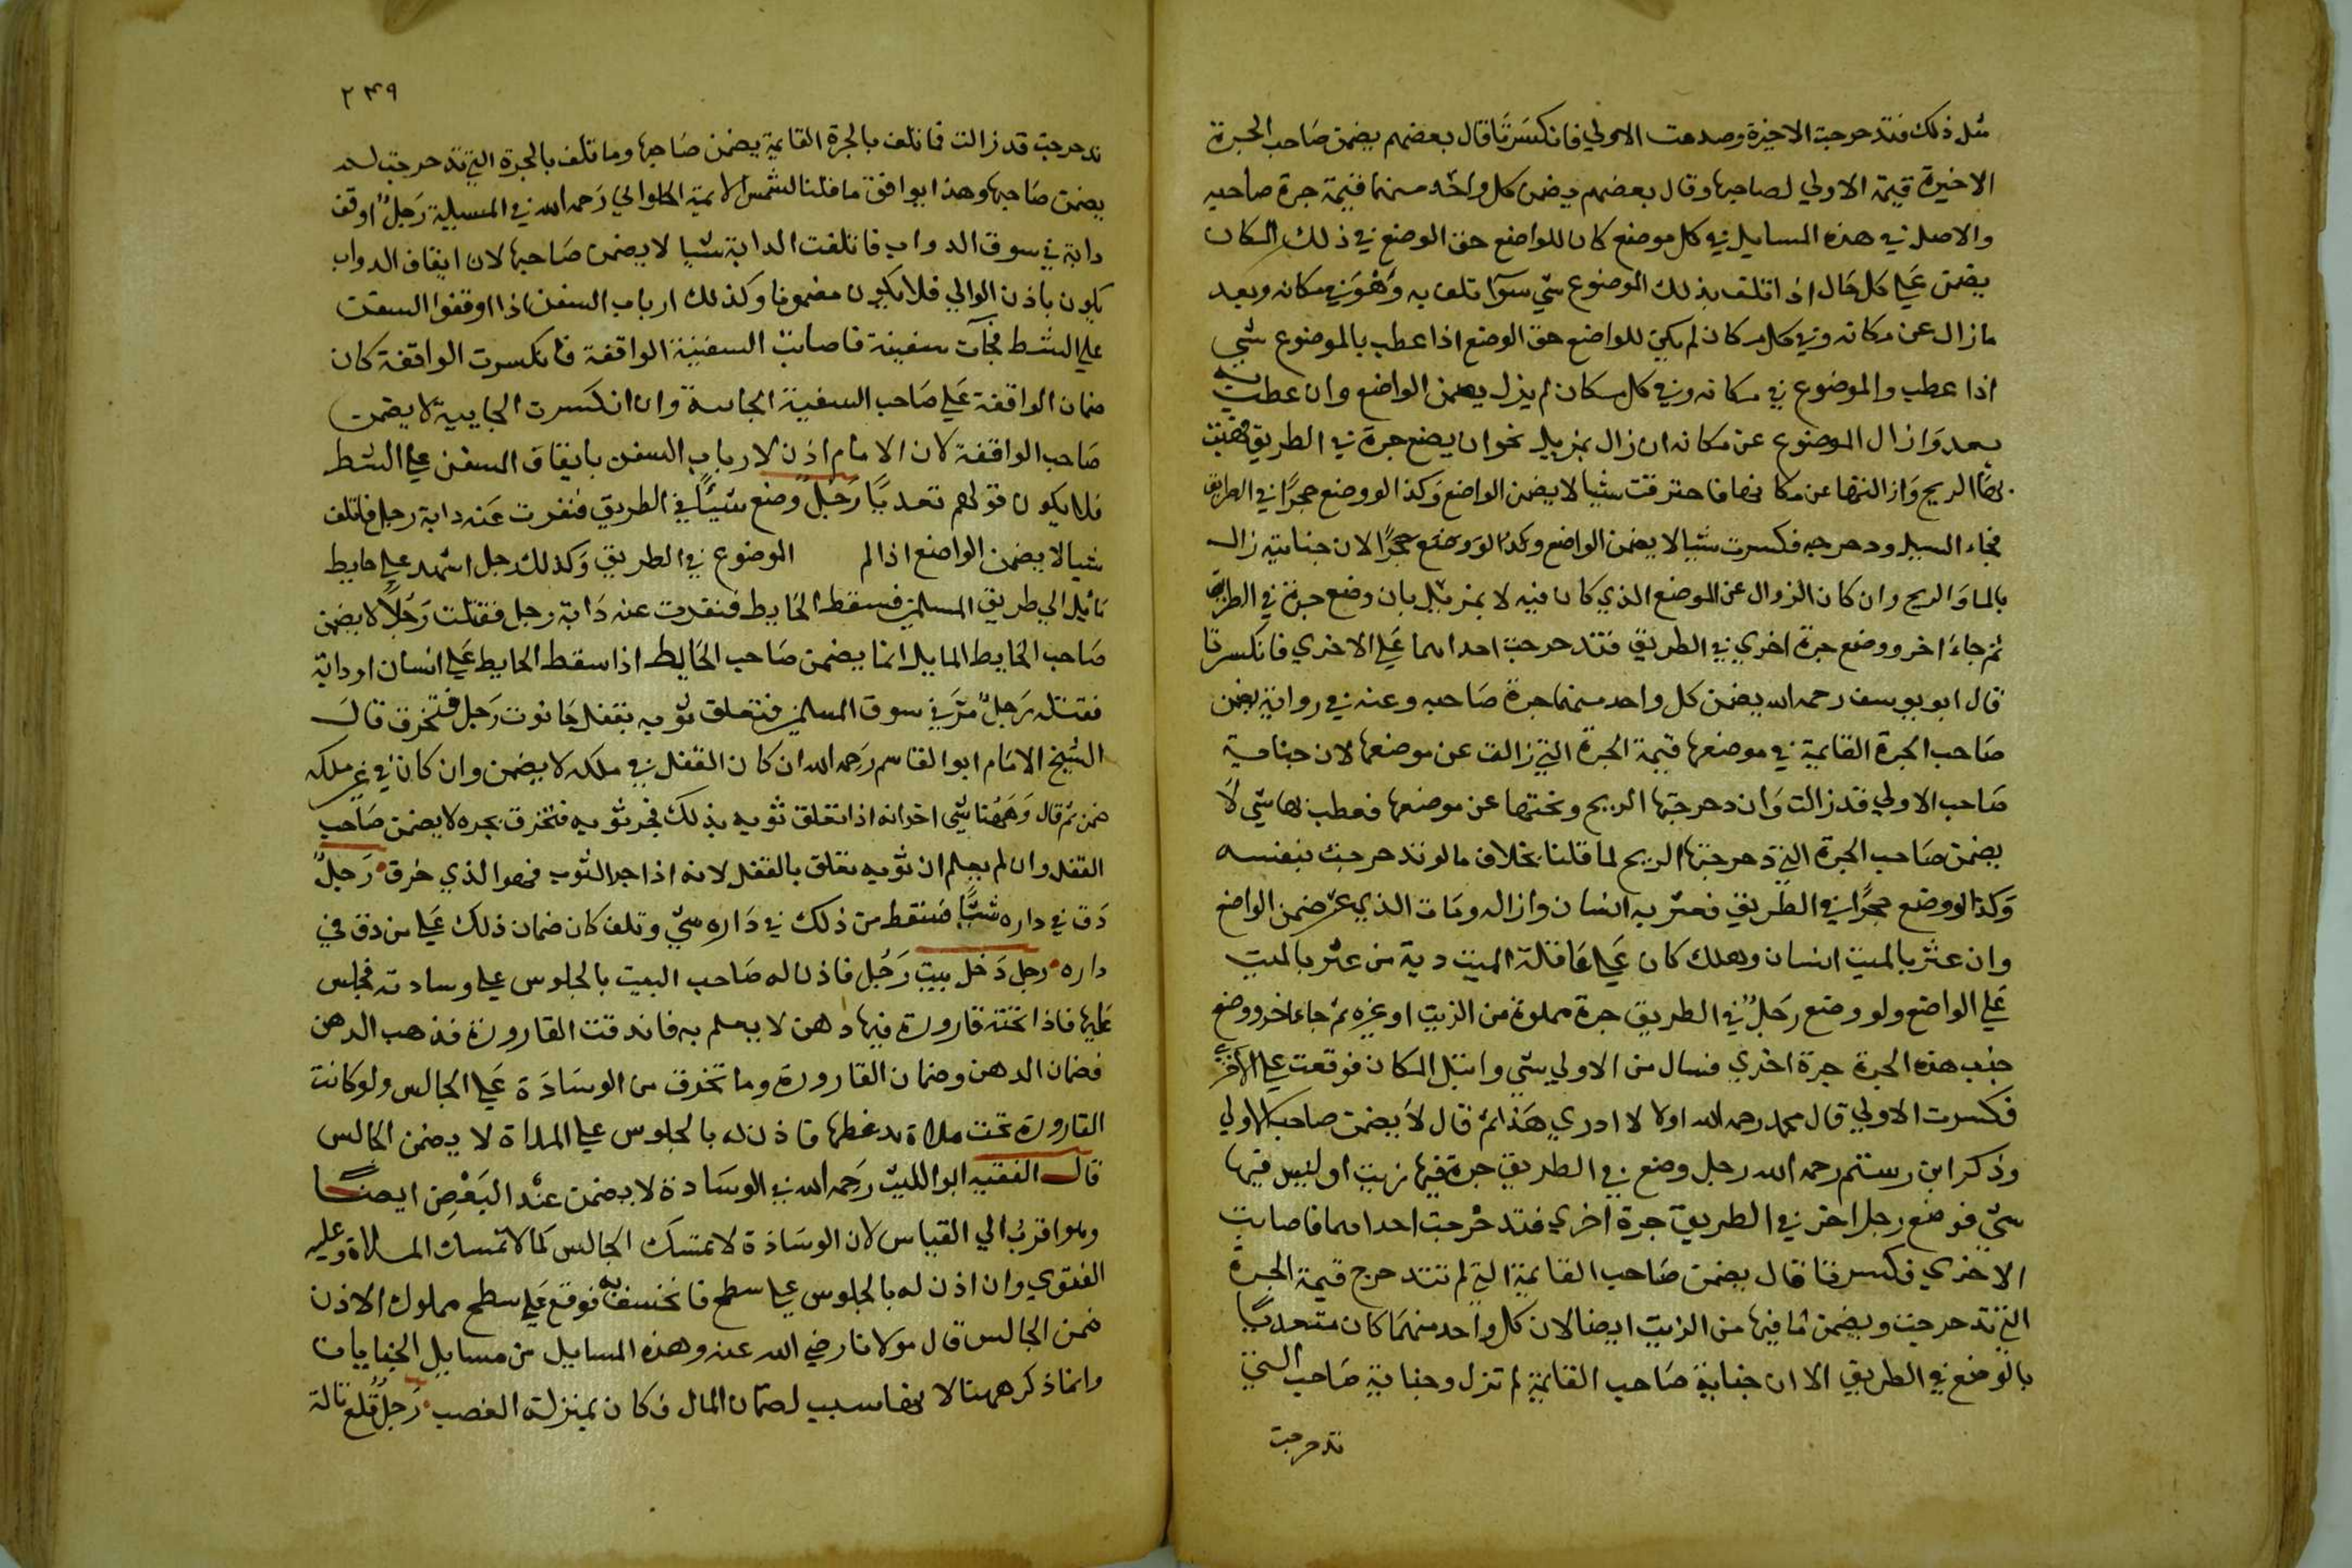 مثل ذلك فتدحرجت الاخيرة وصدمت الاولي فانكسرتا قال بعضهم يضمن صاحب الجرة
الاخيرة قيمة الاولي لصاحبها وقال بعضهم يضمن كل واحد منهما قيمة جرة صاحبه
والاصل في هذه المسايل في كل موضع كان للواضع حق الوضع في ذلك المكان
يضمن علي كل حال اذا تلف بذلك الموضوع شي سوآ تلف به وهو في مكانه وبعد
ما زال عن مكانه وفي كل مكان لم يكن للواضع حق الوضع اذا عطب بالموضوع شي
اذا عطب والموضوع في مكانه وفي كل مكان لم يزل يضمن الواضع وان عطب
بعد وازال الموضوع عن مكانه ان زال بمزيل نحو ان يضع جرة في الطريق فهبت
بها الريح وازالتها عن مكانها فاحترقت شيا لا يضمن الواضع وكذا لو وضع حجرا في الطريق
فجاء السيل ودحرجه فكسرت شيا لا يضمن الواضع وكذا لو وضع حجرا لان جنايته زال
بالما والريح وان كان الزوال عن الموضع الذي كان فيه لا بمزيل بان وضع جرة في الطريق
ثم جاء اخر ووضع جرة اخري في الطريق فتدحرجت احداهما علي الاخري فانكسرتا
قال ابو يوسف رحمه الله يضمن كل واحد منهما جرة صاحبه وعنه في رواية يضمن
صاحب الجرة القايمة في موضعها قيمة الجرة التي زالت عن موضعها لان جناية
صاحب الاولي قد زالت وان دحرجتها الريح ونحتها عن موضعها فعطب بها شي لا
يضمن صاحب الجرة التي دحرجتها الريح لما قلنا بخلاف ما لو تدحرجت بنفسه
وكذا لو وضع حجرا في الطريق فعثر به انسان وازاله ومات الذي عثر ضمن الواضع
وان عثر بالميت انسان وهلك كان علي عاقلة الميت دية من عثر بالميت
علي الواضع ولو وضع رجل في الطريق جرة مملوة من الزيت او غيره ثم جاء اخر ووضع
جنب هذه الجرة جرة اخري فسال من الاولي شي وابتل المكان فوقعت علي الاخري
فكسرت الاولي قال محمد رحمه الله اولا لا ادري هذا ثم قال لا يضمن صاحب الاولي
وذكر ابن رستم رحمه الله رجل وضع في الطريق جرة فيها زيت او ليس فيها
شي فوضع رجل اخر في الطريق جرة اخري فتدحرجت احداهما فاصابت
الاخري فكسرتا قال يضمن صاحب القايمة التي لم تتدحرج قيمة الجرة
التي تدحرجت ويضمن ما فيها من الزيت ايضا لان كل واحد منهما كان متعديا
بالوضع في الطريق الا ان جناية صاحب القايمة لم تزل وجناية صاحب التي
تدحرجت
٢٤٩
تدحرجت قد زالت فما تلف بالجرة القايمة يضمن صاحبها وما تلف بالجرة التي تدحرجت لم
يضمن صاحبها وهذا يوافق ما قلنا لشمس الايمة الحلوالي رحمه الله في المسيلة رجل اوقف
دابة في سوق الدواب فاتلفت الدابة شيا لا يضمن صاحبها لان ايقاف الدواب
يكون باذن الوالي فلا يكون مضمونا وكذلك ارباب السفن اذا اوقفوا السفن
علي الشط فجآت سفينة فاصابت السفينة الواقفة فانكسرت الواقفة كان
ضمان الواقفة علي صاحب السفينة الجايية وان انكسرت الجايية لا يضمن
صاحب الواقفة لان الامام اذن لارباب السفن بايقاف السفن علي الشط
فلا يكون قولهم تعديا رجل وضع شيئا في الطريق فنفرت عنه دابة رجل فاتلف
شيا لا يضمن الواضع اذا لم الموضوع في الطريق وكذلك رجل اشهد علي حايط
مايل الي طريق المسلمين فسقط الحايط فنفرت عنه دابة رجل فقتلت رجلا لا يضمن
صاحب الحايط المايل انما يضمن صاحب الحايط اذا سقط الحايط علي انسان او دابة
فقتله رجل مر في سوق المسلمين فتعلق ثوبه بقفل حانوت رجل فتخرق قال
الشيخ الامام ابو القاسم رحمه الله ان كان القفل في ملكه لا يضمن وان كان في غير ملكه
ضمن ثم قال وههنا شي اخر انه اذا تعلق ثوبه بذلك فجر ثوبه فتخرق بجره لا يضمن صاحب
القفل وان لم يعلم ان ثوبه تعلق بالقفل لانه اذا جر الثوب فهو الذي خرق رجل
دق في داره شيا فسقط من ذلك في داره شي وتلف كان ضمان ذلك علي من دق في
داره رجل دخل بيت رجل فاذن له صاحب البيت بالجلوس علي وسادته فجلس
عليها فاذا تحته قارورة فيها دهن لا يعلم به فاندقت القارورة فذهب الدهن
فضمان الدهن وضمان القارورة وما تخرق من الوسادة علي الجالس ولو كانت
القارورة تحت ملاة قد غطاها فاذن له بالجلوس علي الملاة لا يضمن الجالس
قال الفقيه ابو الليث رحمه الله في الوسادة لا يضمن عند البعض ايضا
وهو اقرب الي القياس لان الوسادة لا تمسك الجالس كما لا تمسك الملاة وعليه
الفتوي وان اذن له بالجلوس علي سطح فانخسف به فوقع علي سطح مملوك الاذن
ضمن الجالس قال مولانا رضي الله عنه وهذه المسايل من مسايل الجنايات
وانما ذكر ههنا لانها سبب لضمان المال فكان بمنزلة الغصب رجل قلع تالة